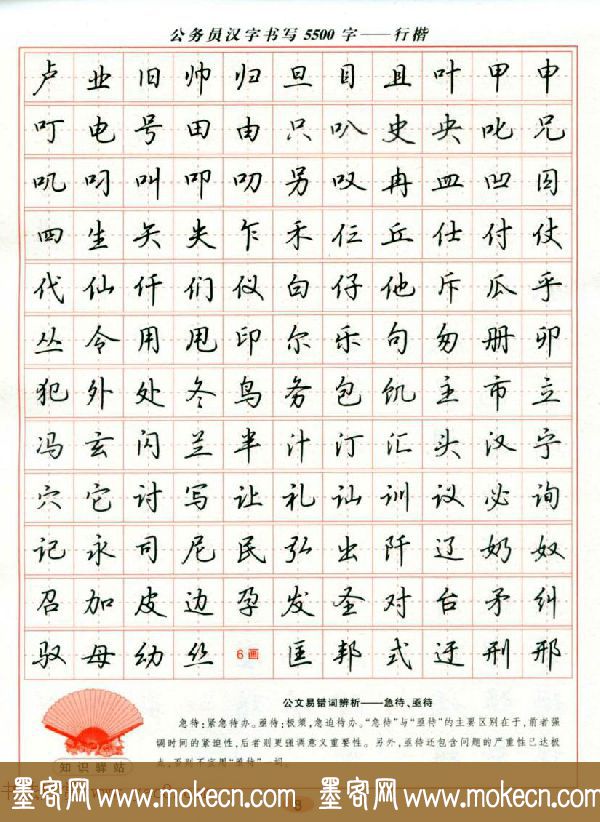 公务员汉字书写5500字——行楷
卢业旧帅归旦目且叶甲申
叮电号田由只叭史央叱兄
叽叼叫叩叨另叹冉皿凹囚
四生矢失乍禾仨丘仕付仗
代仙仟们仪白仔他斥瓜乎
丛令用甩印尔乐句匆册卯
犯外处冬鸟务包饥主市立
冯玄闪兰半汁汀汇头汉宁
穴它讨写让礼讪训议必询
记永司尼民弘出阡辽奶奴
召加皮边孕发圣对台矛纠
驭母幼丝6画匡邦式迂刑邢
公文易错词辨析——急待、亟待
急待：紧急待办。亟待：极须，急迫待办。“急待”与“亟待”的主要区别在于，前者强
调时间的紧迫性，后者则更强调意义重要性。另外，亟待还包含问题的严重性已达极
知识驿站
墨客网 www.mokecn.com 墨客网 www.mokecn.com